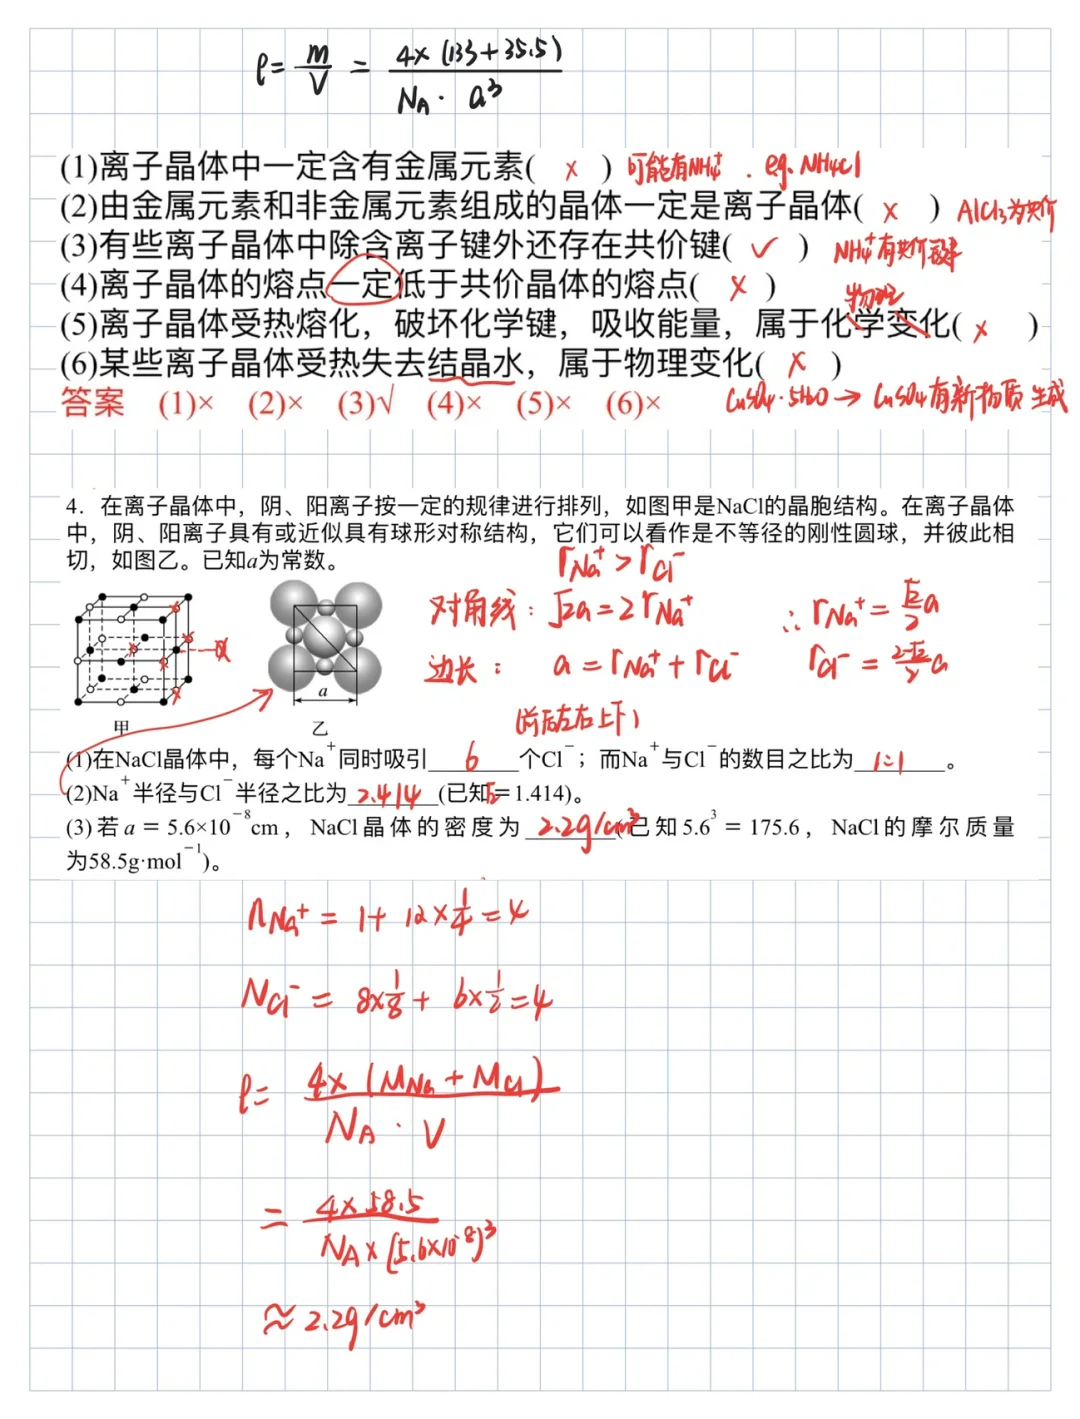 ρ = m/V = 4×(133+35.5) / N_A · a³
(1)离子晶体中一定含有金属元素( × ) 可能有NH₄⁺ . e.g. NH₄Cl
(2)由金属元素和非金属元素组成的晶体一定是离子晶体( × ) AlCl₃为共价
(3)有些离子晶体中除含离子键外还存在共价键( ✓ ) NH₄⁺有共价键
(4)离子晶体的熔点一定低于共价晶体的熔点( × )
物理
(5)离子晶体受热熔化，破坏化学键，吸收能量，属于化学变化( × )
(6)某些离子晶体受热失去结晶水，属于物理变化( × )
答案 (1)× (2)× (3)√ (4)× (5)× (6)× CuSO₄·5H₂O → CuSO₄有新物质生成
4．在离子晶体中，阴、阳离子按一定的规律进行排列，如图甲是NaCl的晶胞结构。在离子晶体
中，阴、阳离子具有或近似具有球形对称结构，它们可以看作是不等径的刚性圆球，并彼此相
切，如图乙。已知a为常数。
r Na⁺ > r Cl⁻
对角线：√2a = 2 r Na⁺ ∴ r Na⁺ = √2/2 a
边长： a = r Na⁺ + r Cl⁻ r Cl⁻ = 2-√2/2 a
a
甲 乙
(前后左右上下)
(1)在NaCl晶体中，每个Na⁺同时吸引 6 个Cl⁻；而Na⁺与Cl⁻的数目之比为 1:1 。
(2)Na⁺半径与Cl⁻半径之比为 2.414 (已知√2=1.414)。
(3)若 a = 5.6×10⁻⁸cm，NaCl晶体的密度为 2.2g/cm³ (已知5.6³ = 175.6，NaCl的摩尔质量
为58.5g·mol⁻¹)。
n Na⁺ = 1 + 12×1/4 = 4
N Cl⁻ = 8×1/8 + 6×1/2 = 4
ρ = 4×(M Na + M Cl) / N_A · V
= 4×58.5 / N_A×(5.6×10⁻⁸)³
≈ 2.2g/cm³